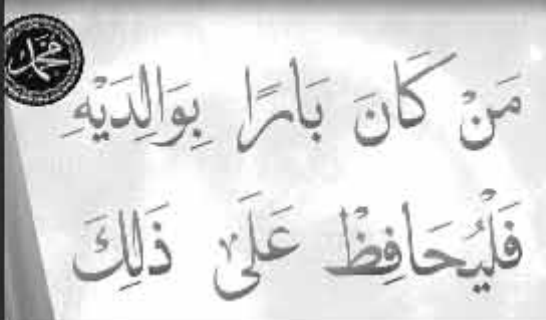 محمد
مَنْ كَانَ بَارًا بِوَالِدَيْهِ
فَلْيُحَافِظْ عَلَىٰ ذَلِكَ